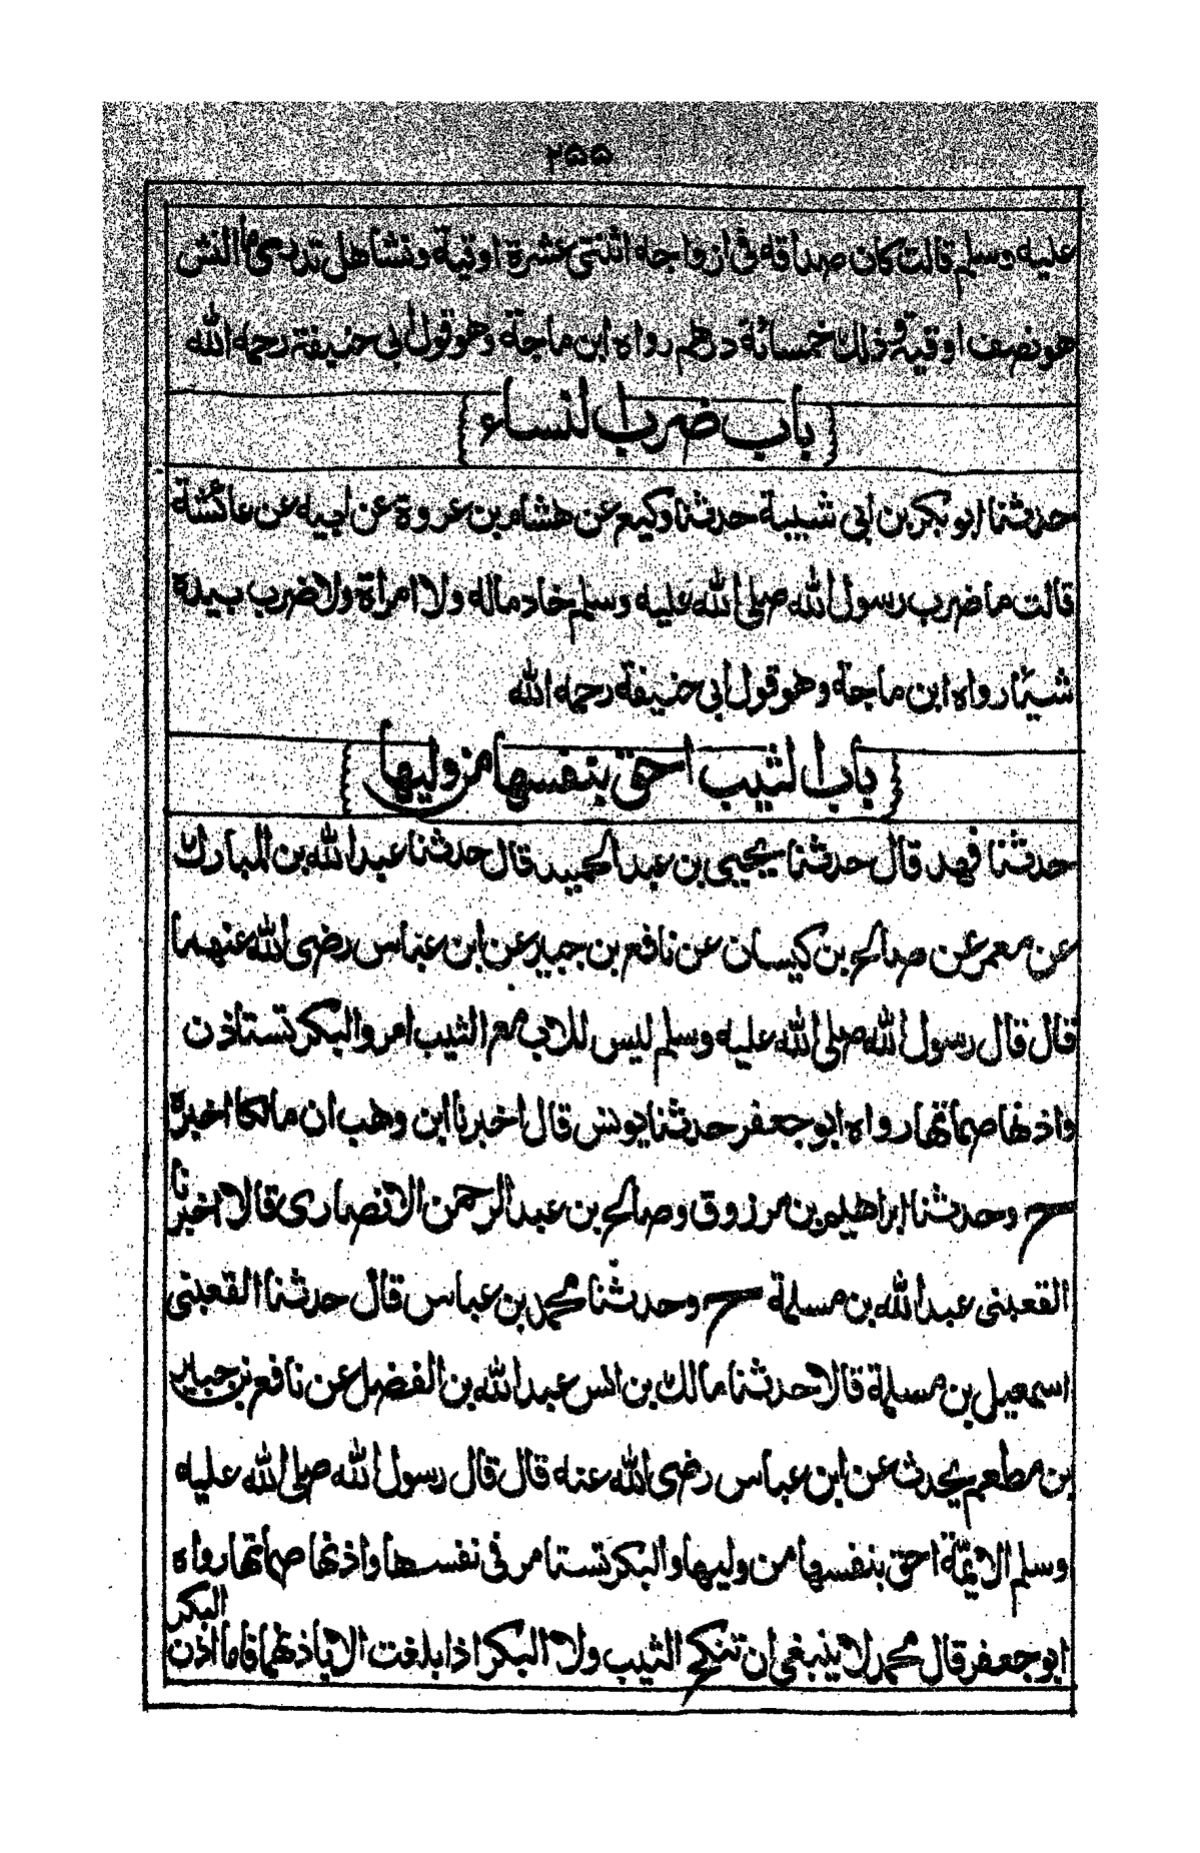 ٢٥٥
عليه وسلم قالت كان صداقه فى ازواجه اثنتى عشرة اوقية ونشا هل تدرى ما النش
هو نصف اوقية وذلك خمسمائة درهم رواه ابن ماجة وهو قول ابى حنيفة رحمه الله
باب ضرب النساء
حدثنا ابو بكر بن ابى شيبة حدثنا وكيع عن هشام بن عروة عن ابيه عن عائشة
قالت ما ضرب رسول الله صلى الله عليه وسلم خادما له ولا امرأة ولا ضرب بيده
شيئا رواه ابن ماجة وهو قول ابى حنيفة رحمه الله
باب الثيب احق بنفسها من وليها
حدثنا فهد قال حدثنا يحيى بن عبد الحميد قال حدثنا عبد الله بن المبارك
عن معمر عن صالح بن كيسان عن نافع بن جبير عن ابن عباس رضى الله عنهما
قال قال رسول الله صلى الله عليه وسلم ليس للاب مع الثيب امر والبكر تستاذن
واذنها صماتها رواه ابو جعفر حدثنا يونس قال اخبرنا ابن وهب ان مالكا اخبره
ح وحدثنا ابراهيم بن مرزوق وصالح بن عبد الرحمن الانصارى قالا اخبرنا
القعبنى عبد الله بن مسلمة ح وحدثنا محمد بن عباس قال حدثنا القعبنى
اسمعيل بن مسلمة قالا حدثنا مالك بن انس عبد الله بن الفضل عن نافع بن جبير
بن مطعم يحدث عن ابن عباس رضى الله عنه قال قال رسول الله صلى الله عليه
وسلم الائمة احق بنفسها من وليها والبكر تستامر فى نفسها واذنها صماتها رواه
ابو جعفر قال محمد لا ينبغى ان تنكح الثيب ولا البكر اذا بلغت الا باذنهما فاما اذن البكر